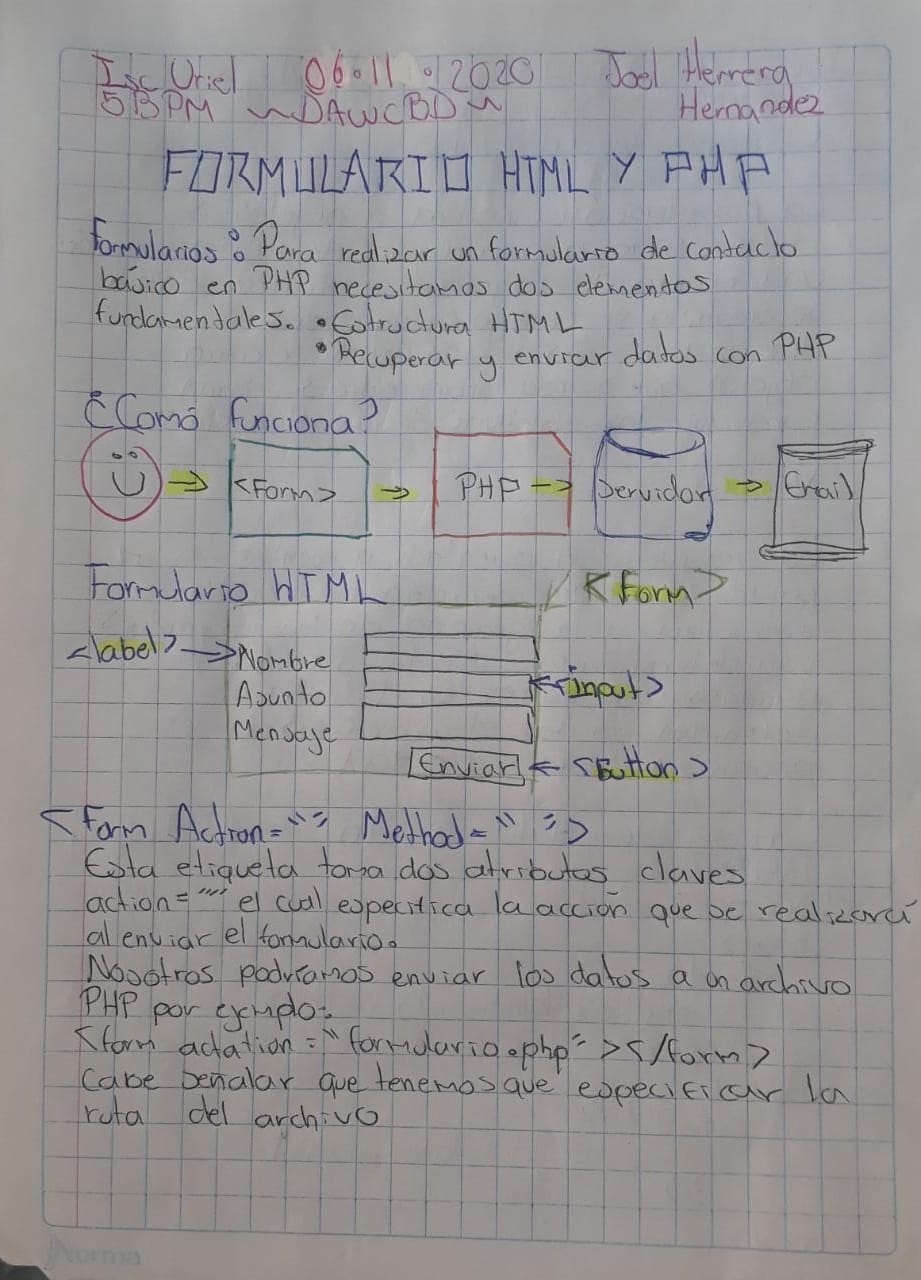 Isc Uriel 06·11·2020 Joel Herrera
5BPM ~DAWCBD~ Hernandez
FORMULARIO HTML Y PHP
Formularios: Para realizar un formulario de contacto
básico en PHP necesitamos dos elementos
fundamentales. •Estructura HTML
•Recuperar y enviar datos con PHP
¿Comó funciona?
<Form> PHP Servidor Email
Formulario HTML <form>
<label> Nombre
Asunto <input>
Mensaje
Enviar <Button>
<form Action="" Method=" ">
Esta etiqueta toma dos atributos claves
action="" el cual especifica la acción que se realizará
al enviar el formulario.
Nosotros podríamos enviar los datos a un archivo
PHP por ejemplo:
<form actation="formulario.php"></form>
Cabe señalar que tenemos que especificar la
ruta del archivo
Norma